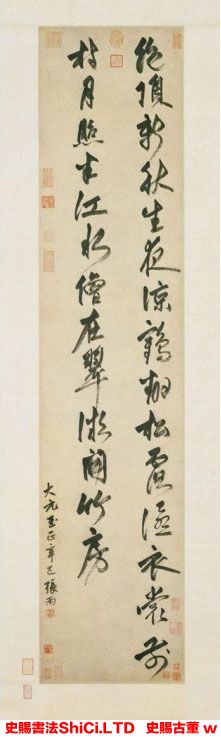 絶頂新秋生夜涼鶴翻松露溼衣裳前
村月照半江水僧在翠微開竹房
大元至正辛巳張雨
史賜書法ShiCi.LTD 史賜古董 w